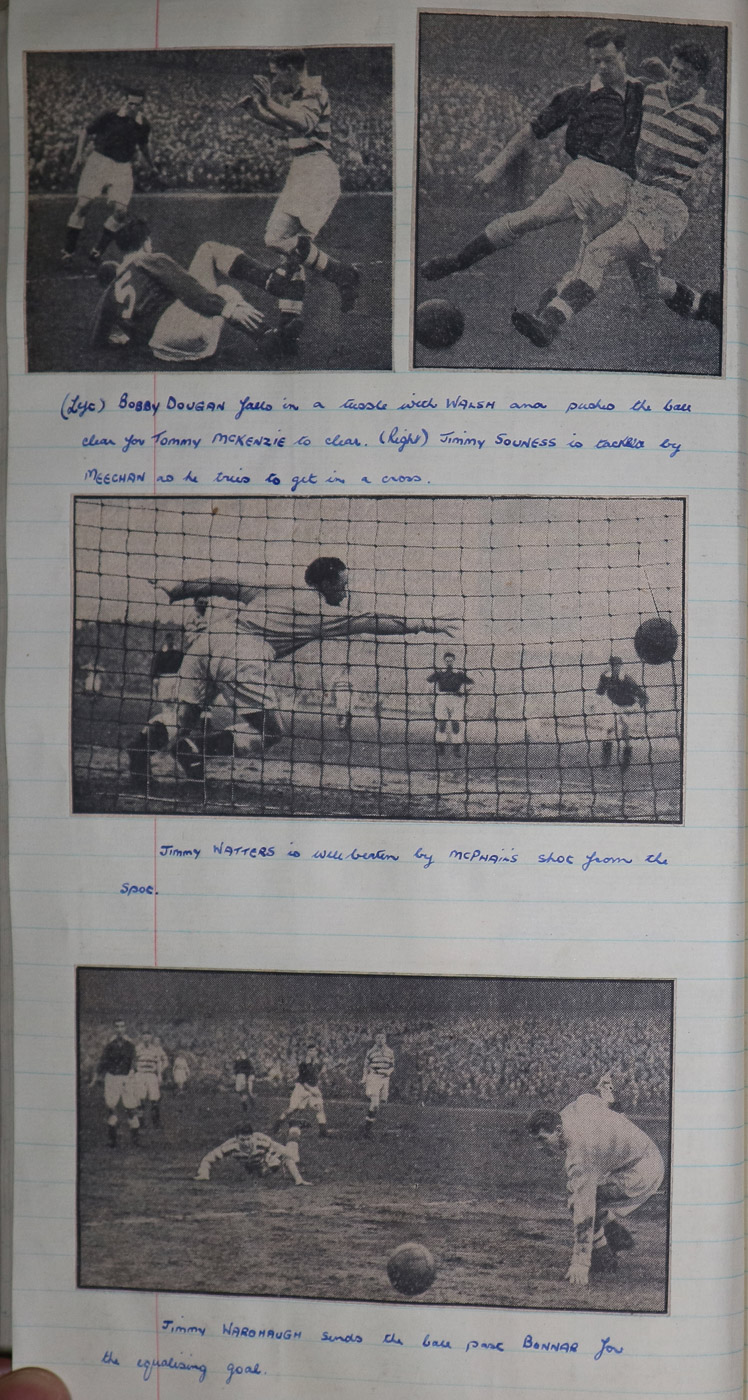 5
(Left) BOBBY DOUGAN falls in a tussle with WALSH and pushes the ball
clear for TOMMY MCKENZIE to clear. (Right) JIMMY SOUNESS is tackled by
MEECHAN as he tries to get in a cross.
JIMMY WATTERS is well beaten by MCPHAIL'S shot from the
spot.
JIMMY WARDHAUGH sends the ball past BONNAR for
the equalising goal.